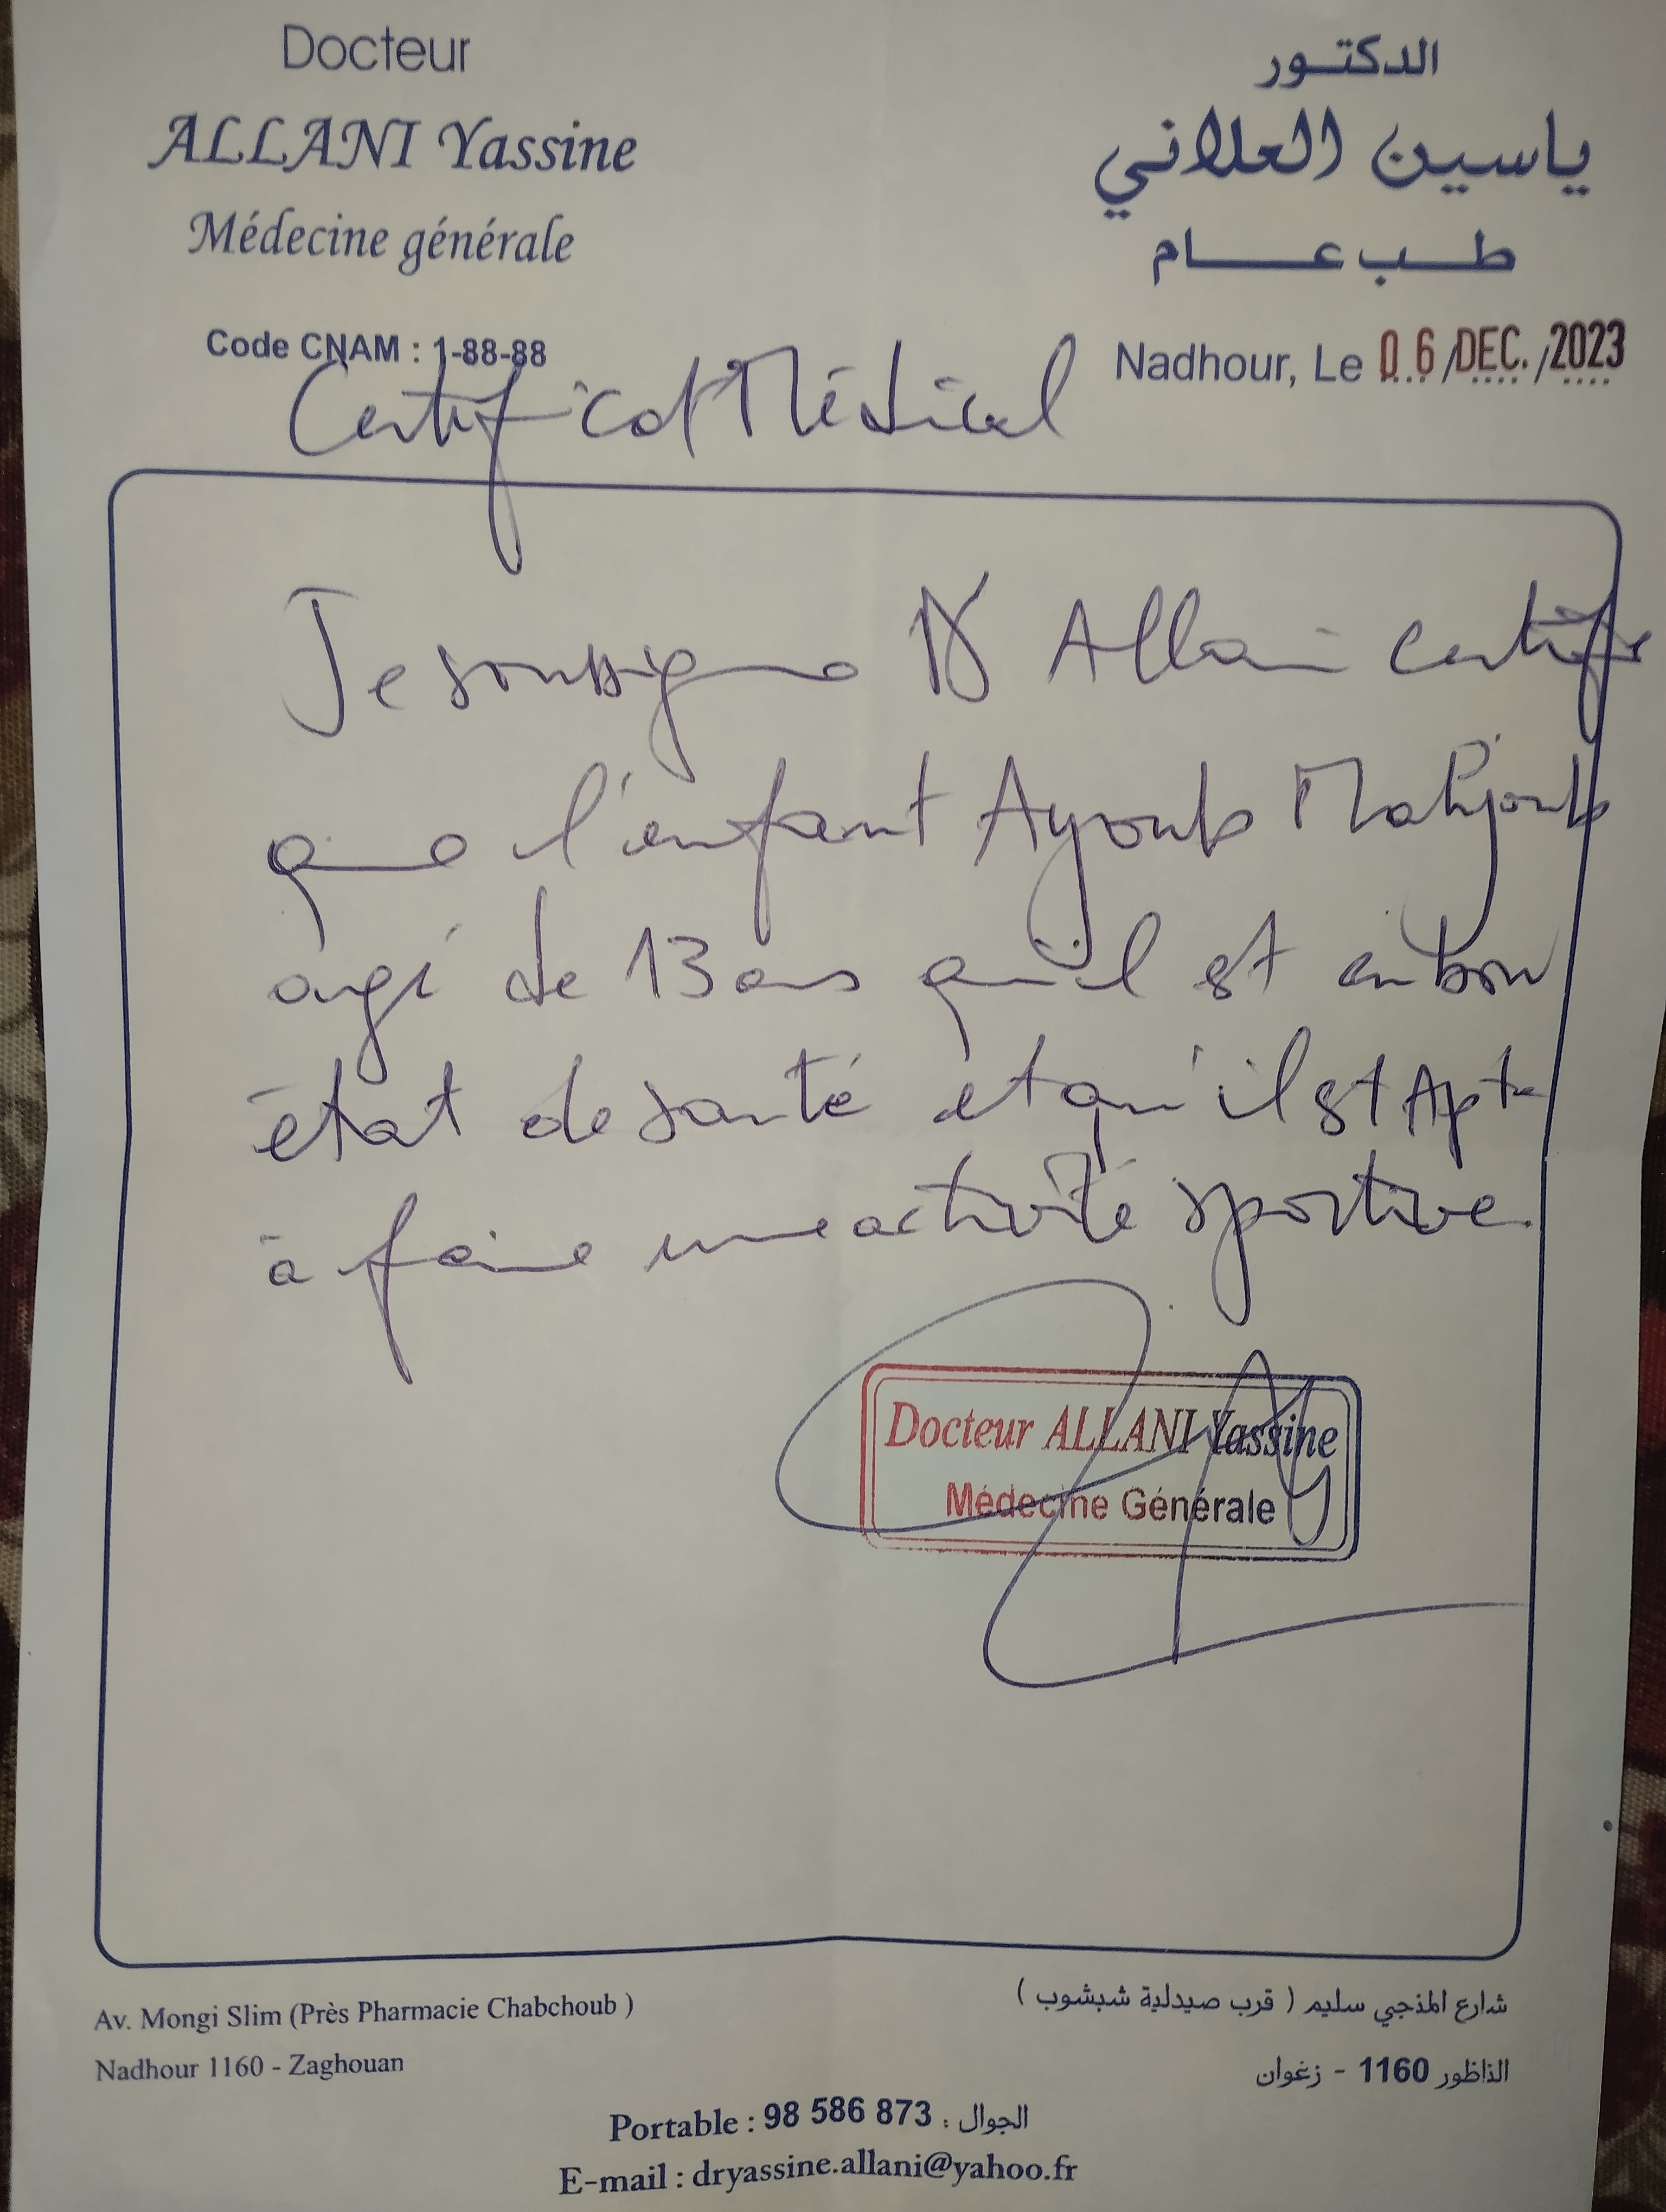 Docteur
ALLANI Yassine
Médecine générale
Code CNAM : 1-88-88
الدكتور
ياسين العلاني
طب عام
Nadhour, Le 06/DEC./2023
Certificat Médical
Je soussigne Dr Allani certifie
que l'enfant Ayoub Mahjoub
agé de 13 ans qu'il est en bon
état de santé et qu'il est Apte
à faire une activité sportive.
Docteur ALLANI Yassine
Médecine Générale
Av. Mongi Slim (Près Pharmacie Chabchoub )
Nadhour 1160 - Zaghouan
شارع المنجي سليم ( قرب صيدلية شبشوب )
الناظور 1160 - زغوان
Portable : 98 586 873 : الجوال
E-mail : dryassine.allani@yahoo.fr